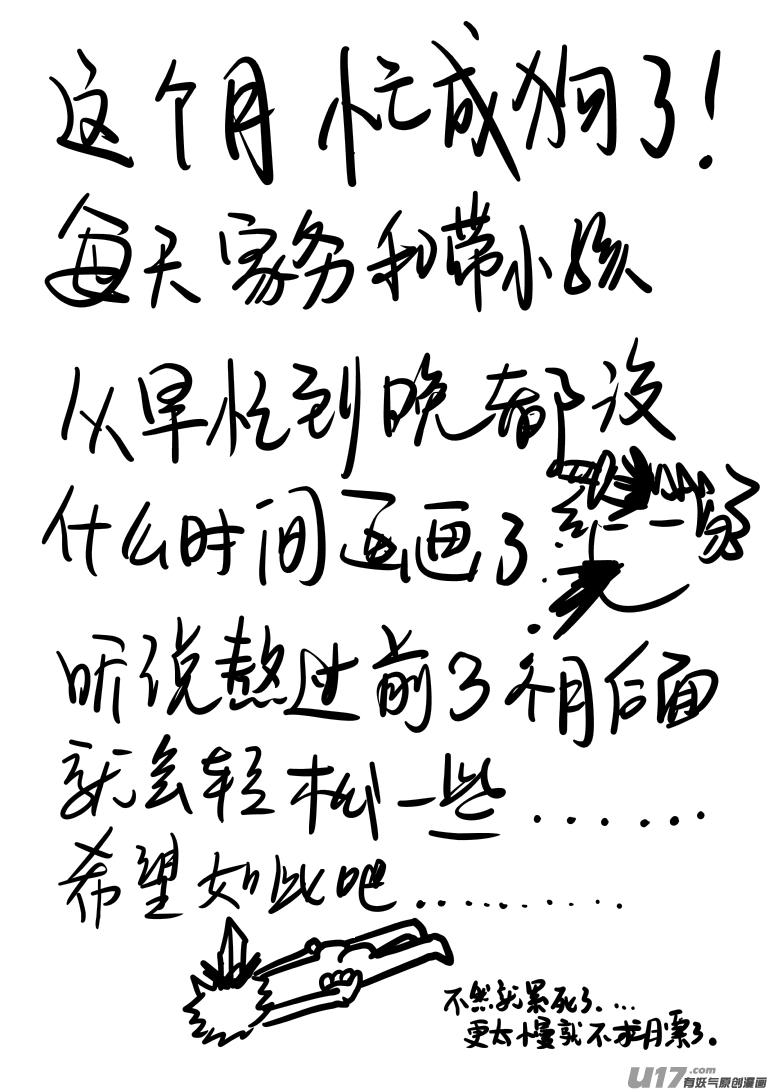 这个月忙成狗了！
每天家务和带小孩
从早忙到晚都没
什么时间画画了
听说熬过前3个月后面
就会轻松一些......
希望如此吧..........
不然就累死了....
更太慢就不求月票了。
U17.com
有妖气原创漫画